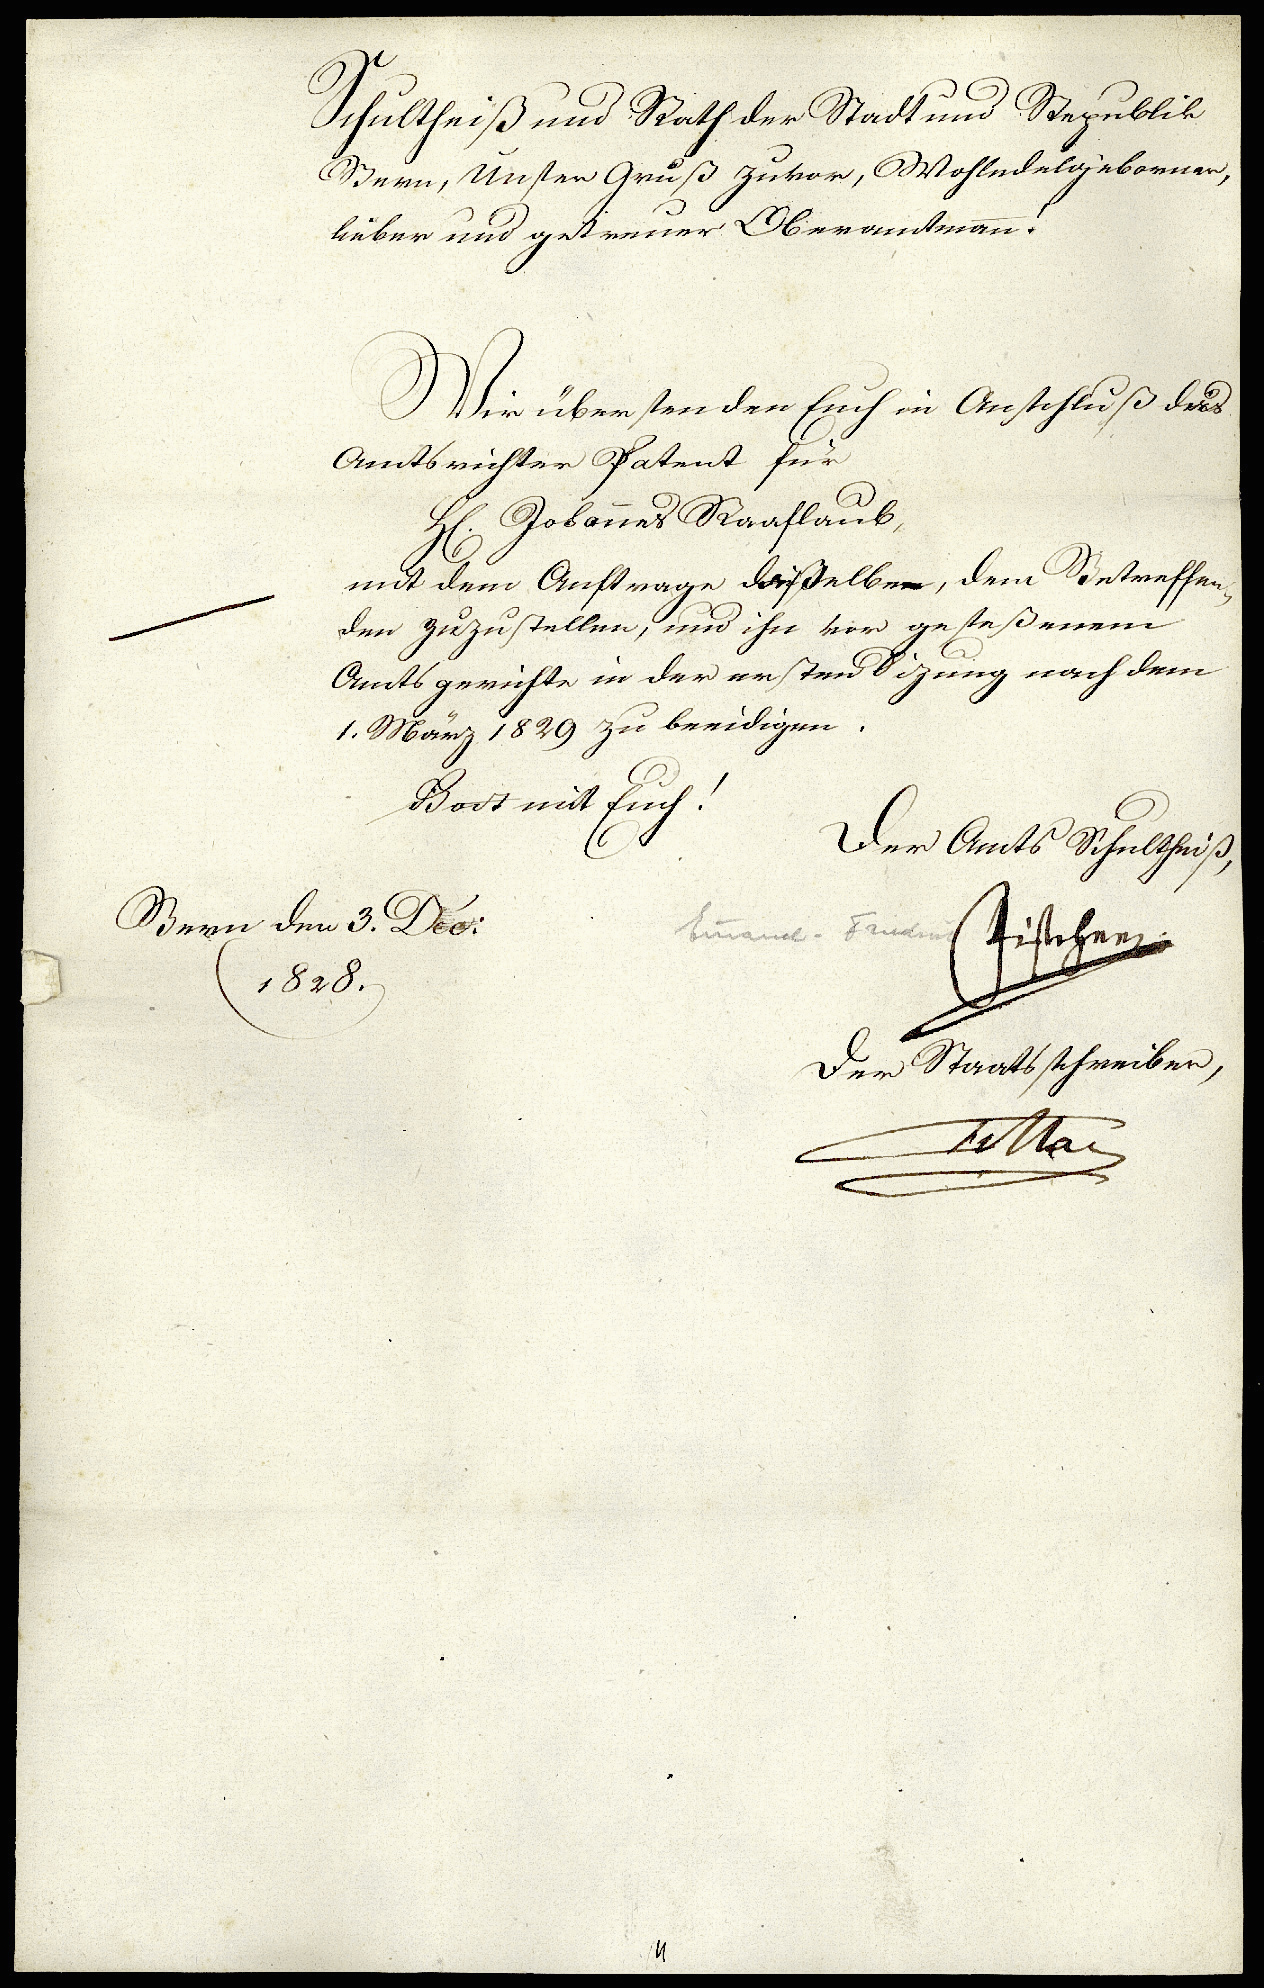 Schultheiß und Rath der Stadt und Republik
Bern, Unser Gruß zuvor, Wohledelgeborner,
lieber und getreuer Oberamtmann!
Wir übersenden Euch in Anschluß das
Amtsrichter Patent für
H. Johannes Raaflaub,
mit dem Auftrage daßelbe, dem Betreffen-
den zuzustellen, und ihn vor geseßenem
Amtsgerichte in der ersten Sizung nach dem
1. März 1829 zu beeidigen.
Gott mit Euch!
Der Amts Schultheiß,
Bern den 3. Dec:
Emanuel - Friedrich Fischer
1828.
Der Staatsschreiber,